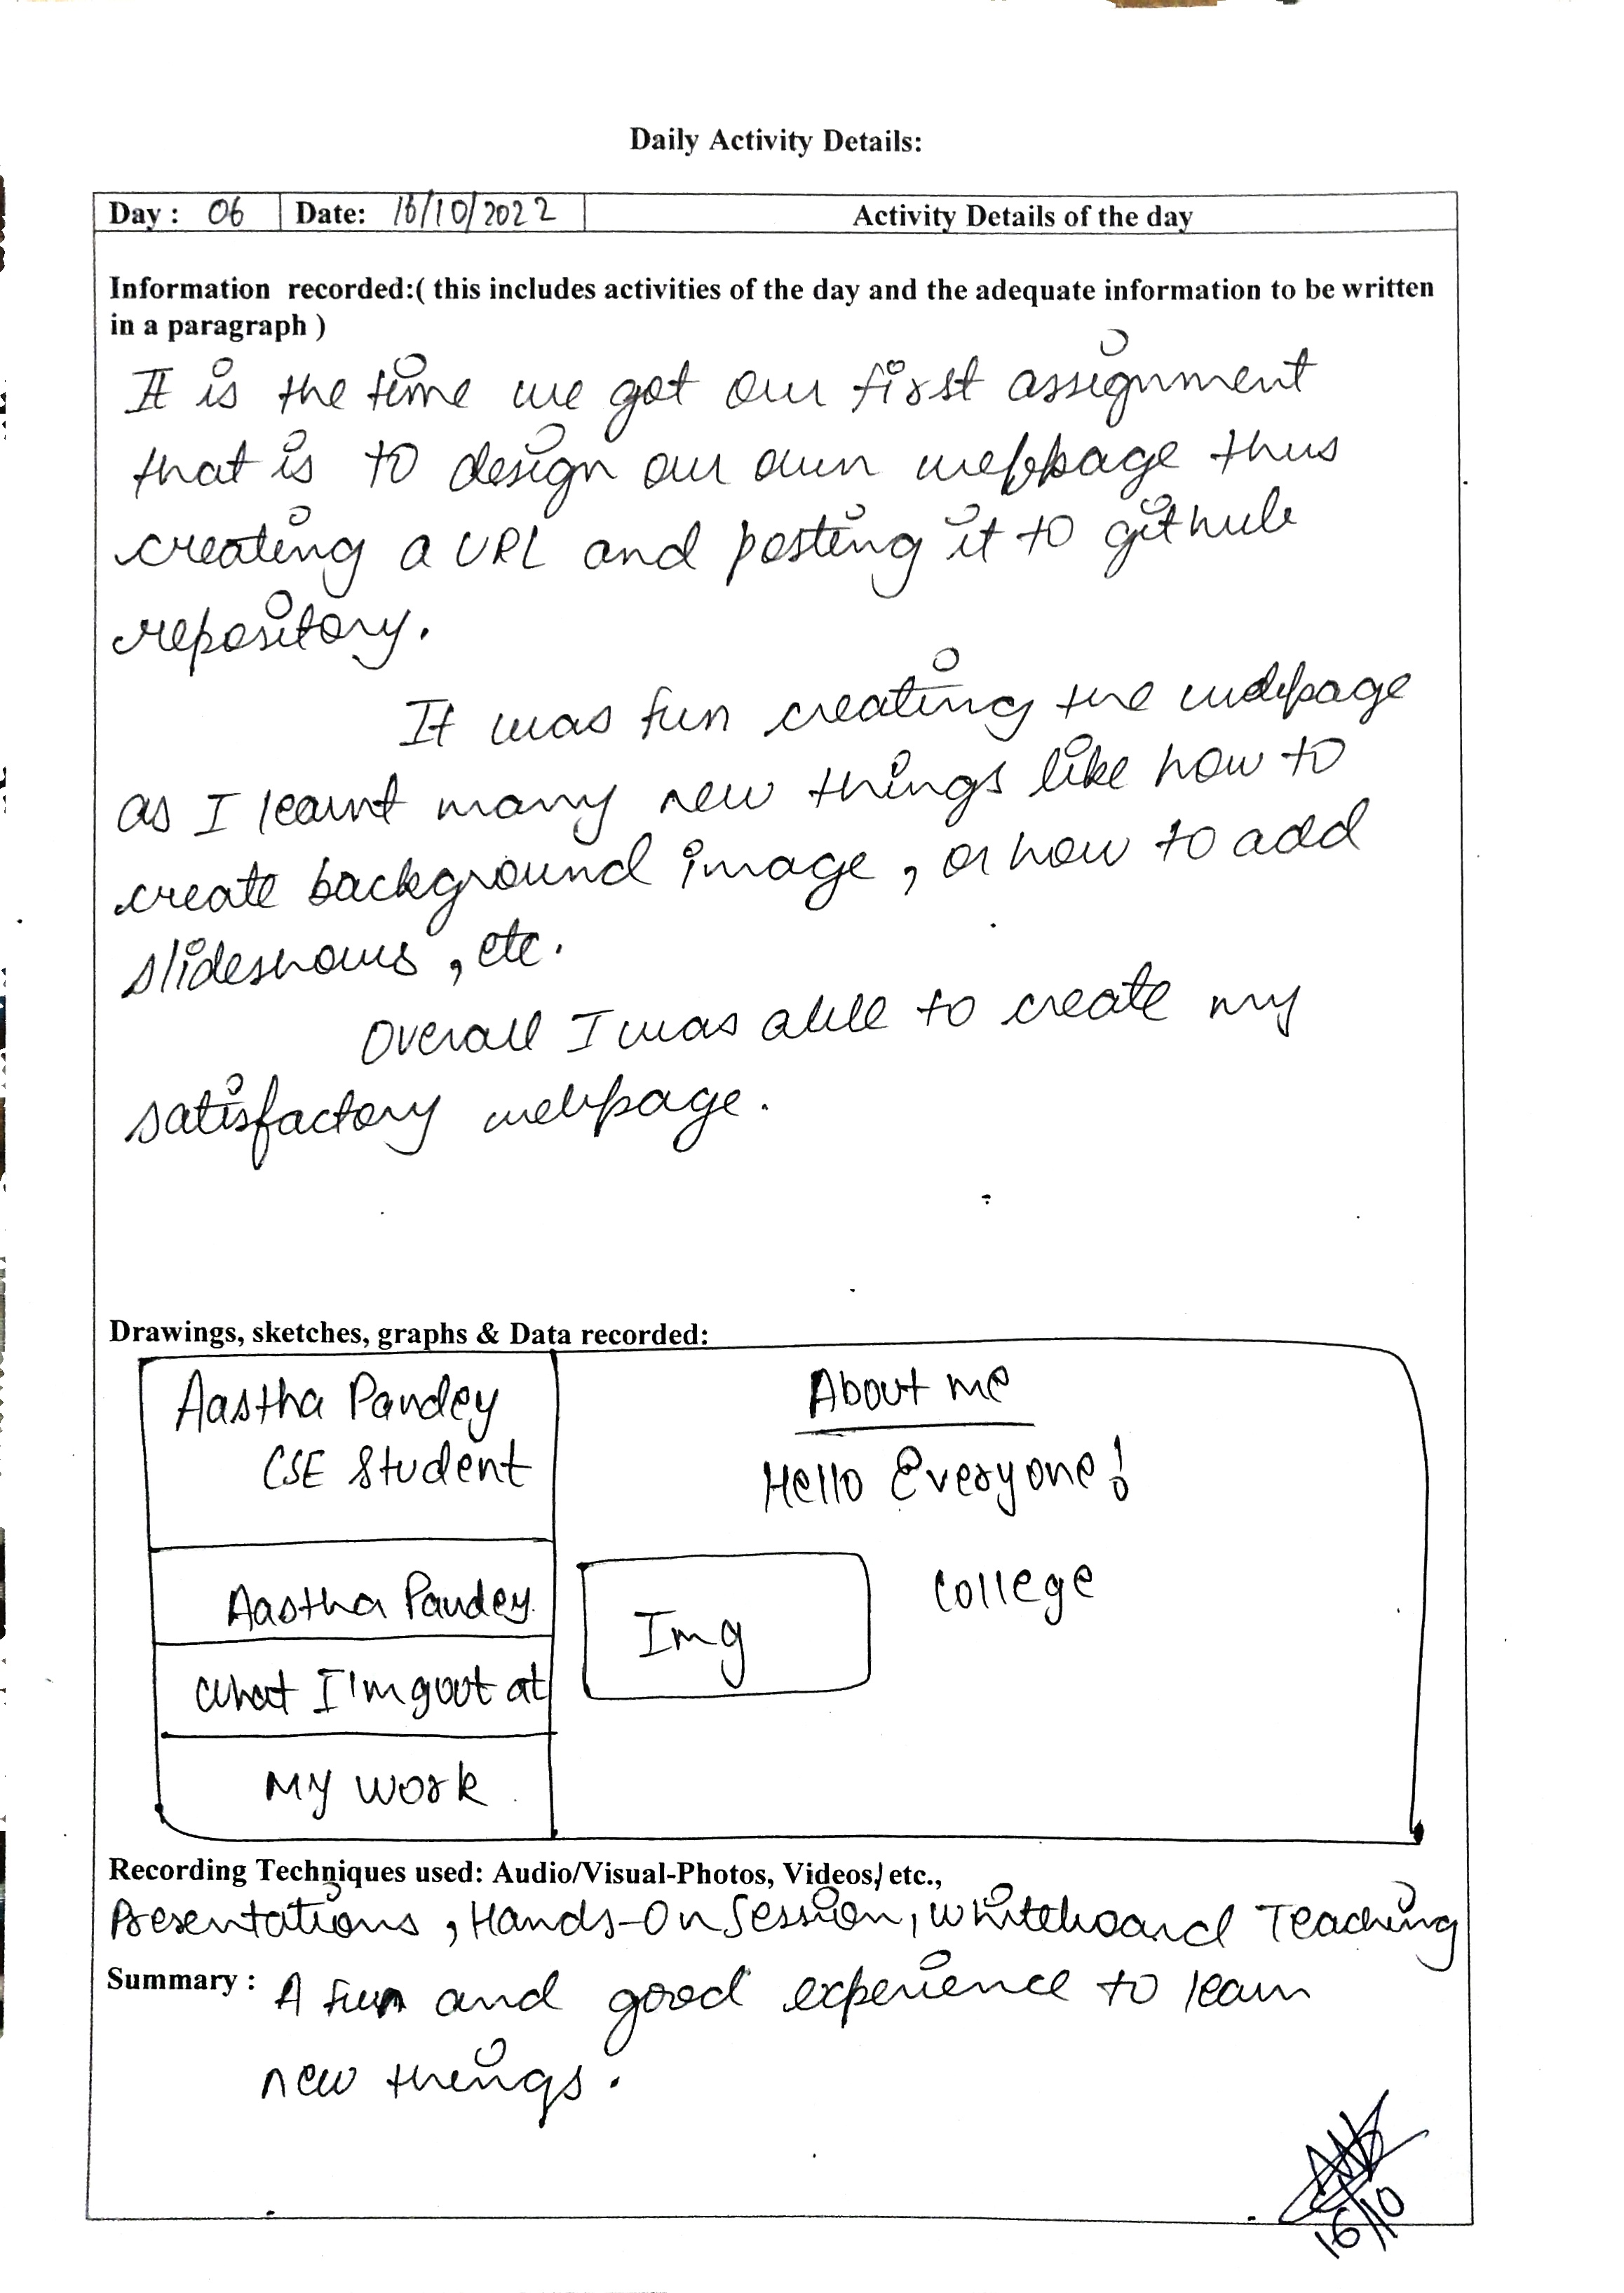 Daily Activity Details:
Day : 06 Date: 16/10/2022 Activity Details of the day
Information recorded:( this includes activities of the day and the adequate information to be written
in a paragraph )
It is the time we got our first assignment
that is to design our own webpage thus
creating a URL and posting it to github
repository.
It was fun creating the webpage
as I learnt many new things like how to
create background image, or how to add
slideshows, etc.
Overall I was able to create my
satisfactory webpage.
Drawings, sketches, graphs & Data recorded:
Aastha Pandey
CSE Student
About me
Hello Everyone!
Aastha Pandey
Img
College
What I'm goot at
My work
Recording Techniques used: Audio/Visual-Photos, Videos/ etc.,
Presentations, Hands-On Session, Whiteboard Teaching
Summary : A fun and good experience to learn
new things.
16/10